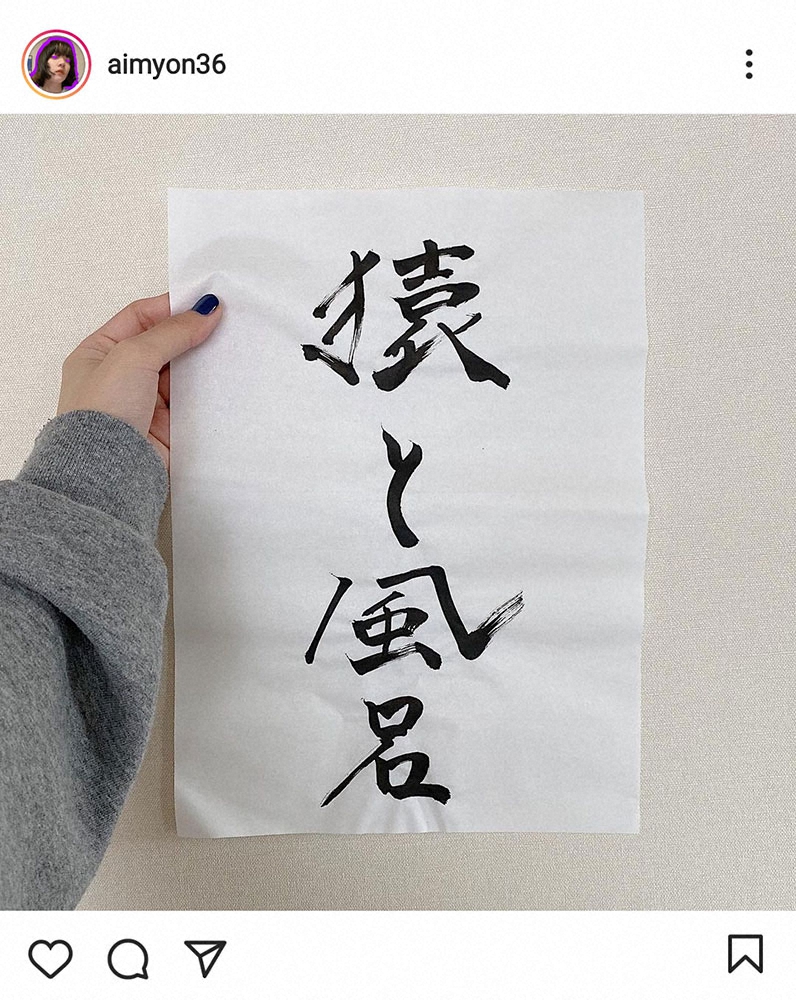 aimyon36
猿と風呂